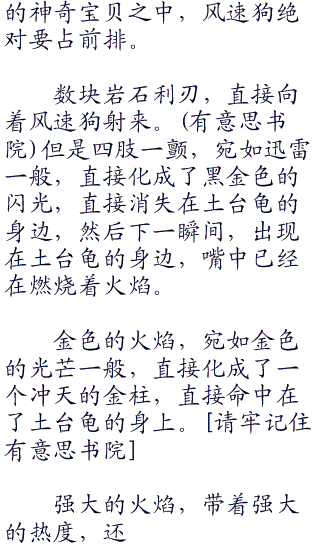 的神奇宝贝之中，风速狗绝
对要占前排。
数块岩石利刃，直接向
着风速狗射来。(有意思书
院)但是四肢一颤，宛如迅雷
一般，直接化成了黑金色的
闪光，直接消失在土台龟的
身边，然后下一瞬间，出现
在土台龟的身边，嘴中已经
在燃烧着火焰。
金色的火焰，宛如金色
的光芒一般，直接化成了一
个冲天的金柱，直接命中在
了土台龟的身上。[请牢记住
有意思书院]
强大的火焰，带着强大
的热度，还